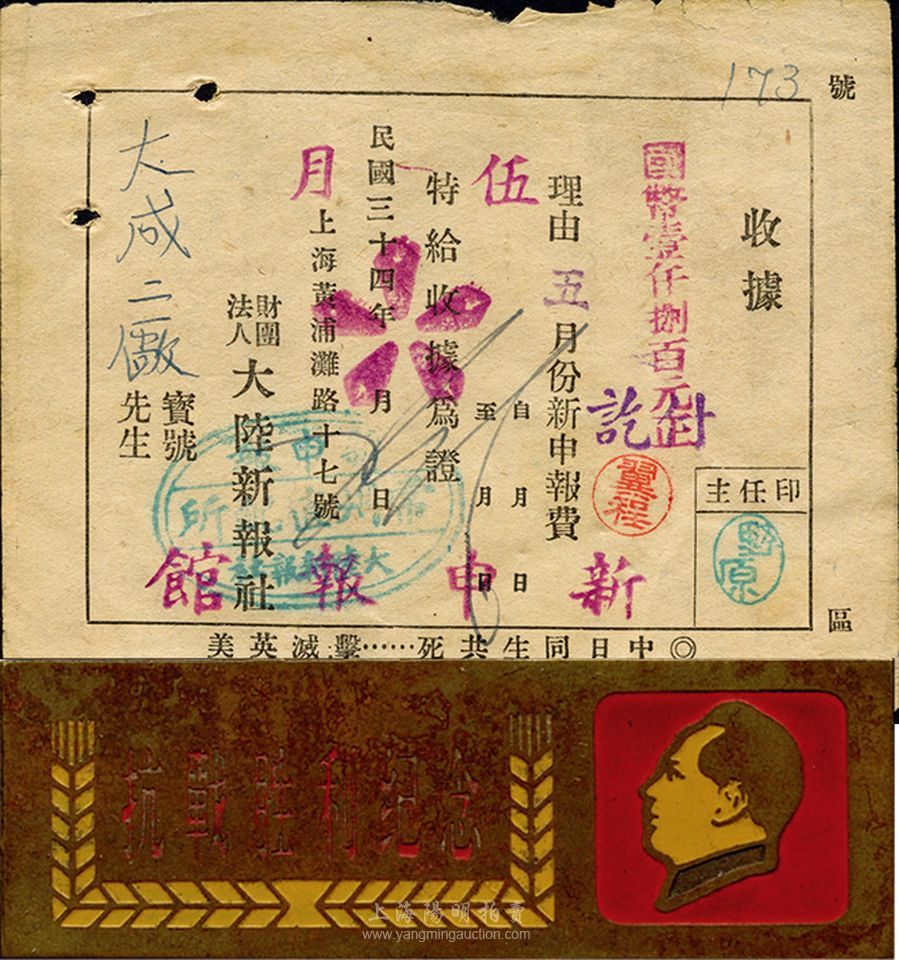 173
號
收據
國幣壹仟捌百元正
計訖
翼程
主任印
野原
理由 五月份新申報費
自 月 日
至 月 日
伍
特給收據爲證
民國三十四年 月 日
月
上海黃浦灘路十七號
財團法人大陸新報社
寶號
先生
大成二廠
新申報館
區
◎中日同生共死……擊滅英美
抗戰胜利纪念
上海陽明拍賣
www.yangmingauction.com